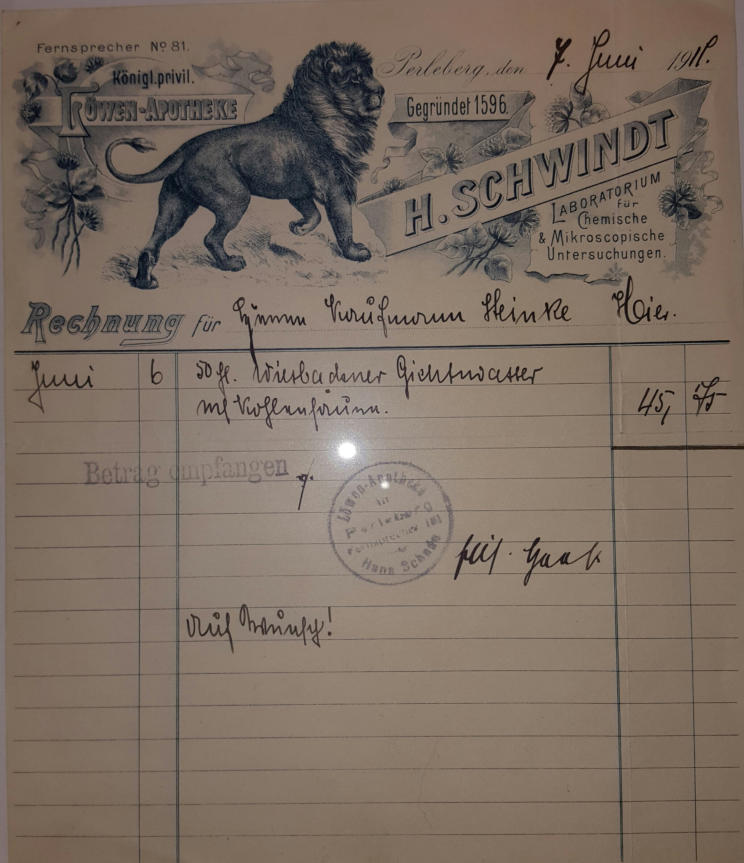 Fernsprecher No 81.
Königl. privil.
Löwen-Apotheke
Perleberg, den 7. Juni 1918.
Gegründet 1596.
H. SCHWINDT
LABORATORIUM
für
Chemische
& Mikroscopische
Untersuchungen.
Rechnung für Herrn Kaufmann Steinke Hier.
Juni 6 50 Fl. Wiesbadener Gichtwasser
mit Kohlensäure. 45, 75
Betrag empfangen
Löwen-Apotheke
in
Perleberg
Fernsprecher 181
Hans Schade
Auf Wunsch!